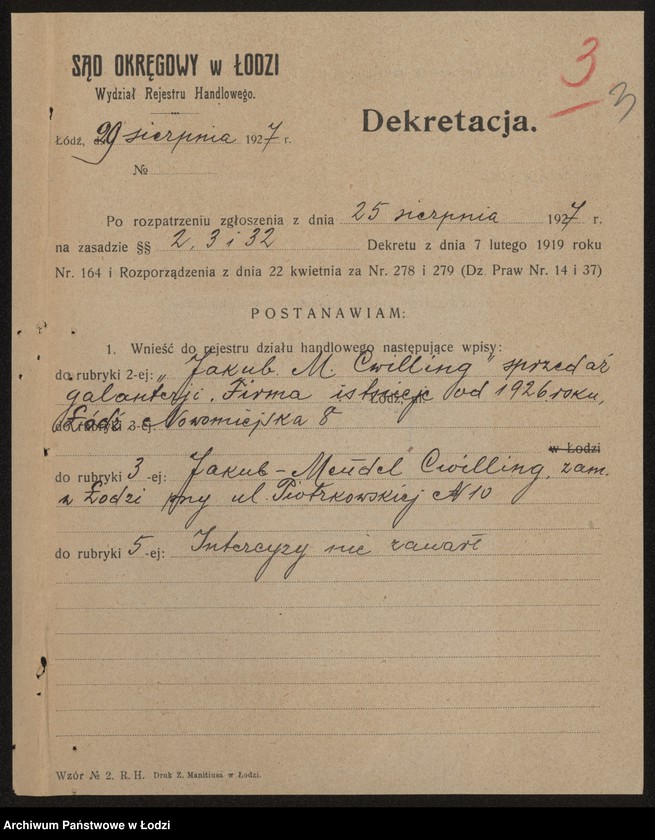 SĄD OKRĘGOWY w ŁODZI
Wydział Rejestru Handlowego.
3
3
Dekretacja.
Łódź, d. 29 sierpnia 1927 r.
№
Po rozpatrzeniu zgłoszenia z dnia 25 sierpnia 1927 r.
na zasadzie §§ 2, 3 i 32 Dekretu z dnia 7 lutego 1919 roku
Nr. 164 i Rozporządzenia z dnia 22 kwietnia za Nr. 278 i 279 (Dz. Praw Nr. 14 i 37)
POSTANAWIAM:
1. Wnieść do rejestru działu handlowego następujące wpisy:
do rubryki 2-ej: „Jakub M. Cwilling" sprzedaż
galanterji. Firma istnieje od 1926 roku,
Łódź, Nowomiejska 8
w Łodzi
do rubryki 3-ej: Jakub-Mendel Cwilling, zam.
w Łodzi przy ul. Piotrkowskiej № 10
do rubryki 5-ej: Intercyzy nie zawarł
Wzór № 2. R. H. Druk Z. Manitiusa w Łodzi.
Archiwum Państwowe w Łodzi